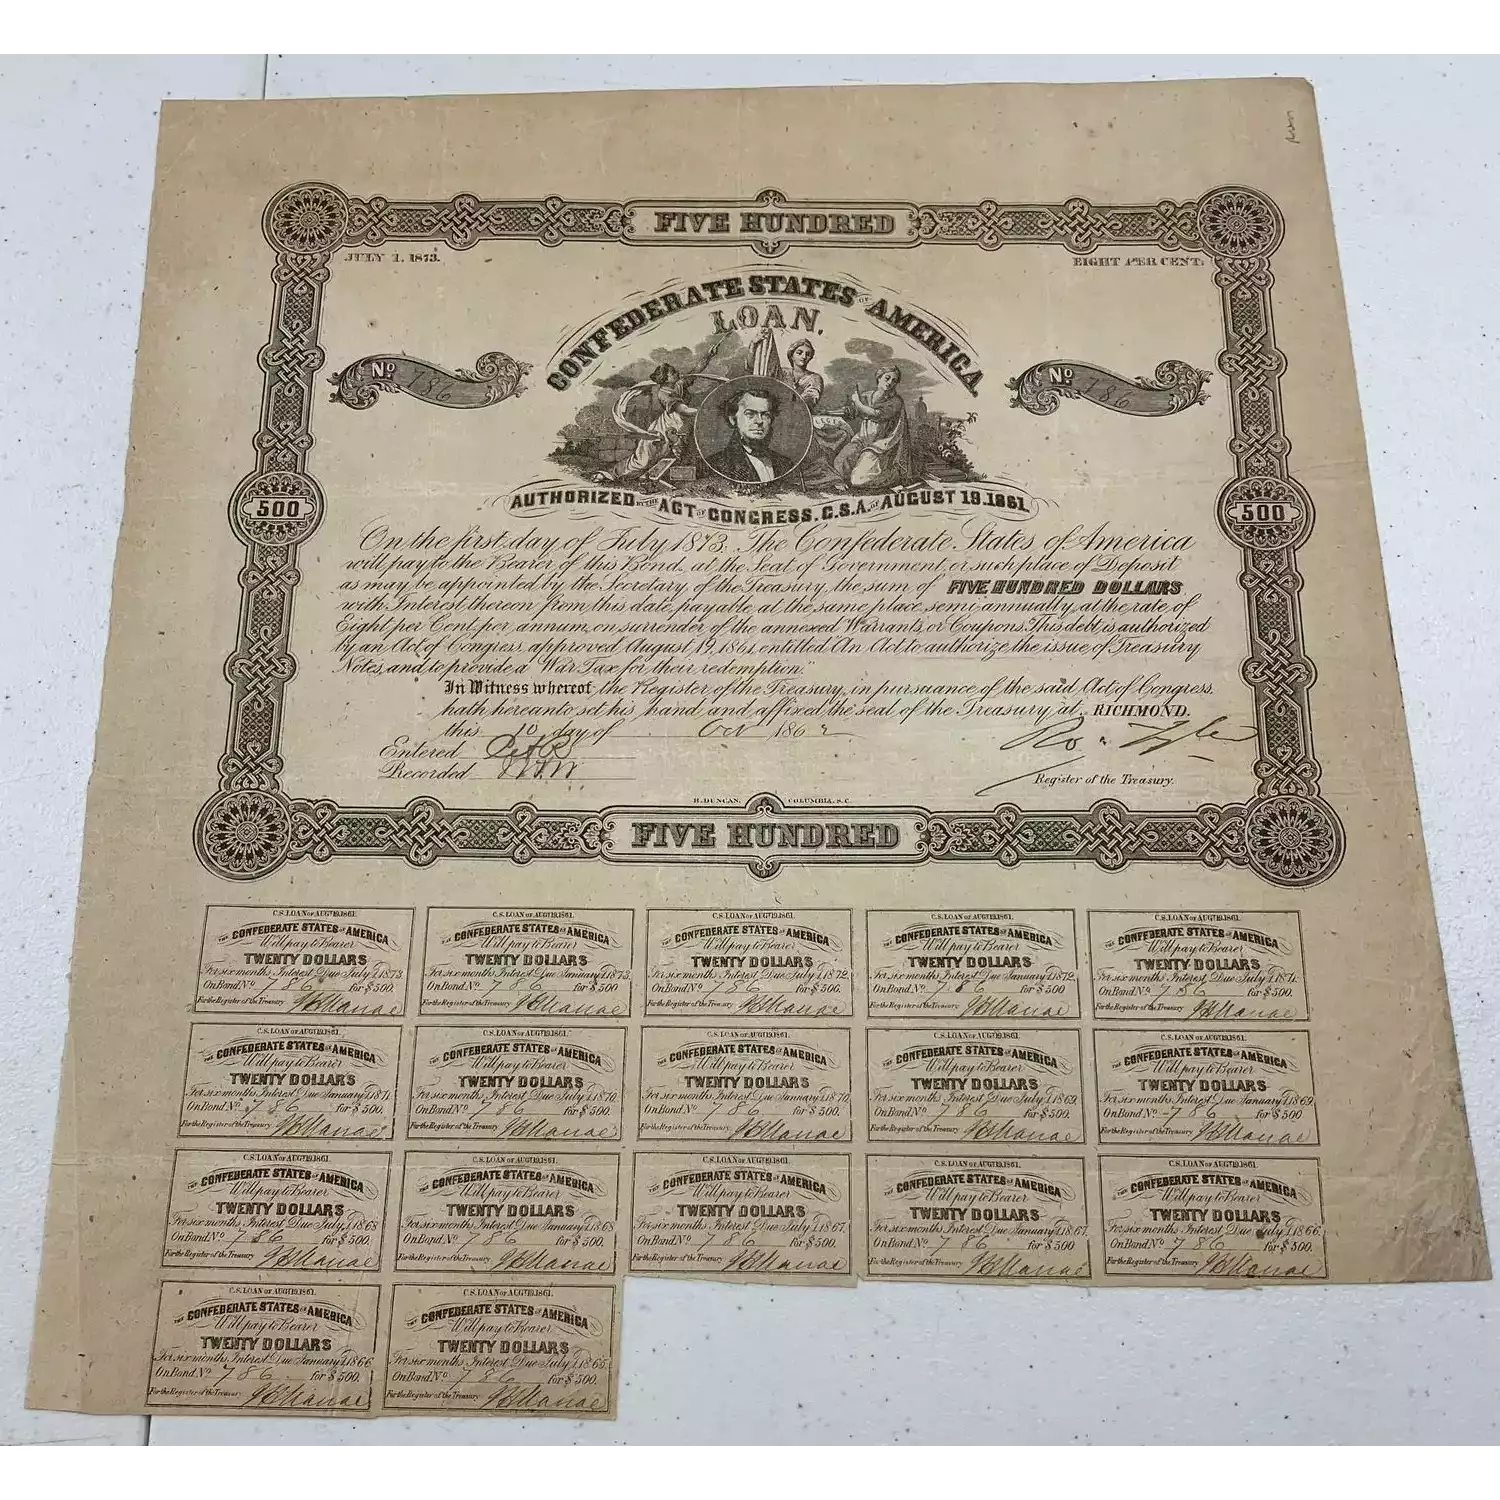 FIVE HUNDRED
JULY 1. 1873.
EIGHT PER CENT.
CONFEDERATE STATES OF AMERICA
LOAN.
No 786
No 786
AUTHORIZED BY THE ACT OF CONGRESS. C.S.A. OF AUGUST 19.1861.
500
500
On the first day of July 1873. The Confederate States of America
will pay to the Bearer of this Bond, at the Seat of Government, or such place of Deposit
as may be appointed by the Secretary of the Treasury, the sum of FIVE HUNDRED DOLLARS
with Interest thereon from this date, payable at the same place, semi-annually, at the rate of
Eight per Cent. per annum, on surrender of the annexed Warrants, or Coupons. This debt is authorized
by an Act of Congress, approved August 19, 1861, entitled An Act to authorize the issue of Treasury
Notes, and to provide a War Tax for their redemption."
In Witness whereof the Register of the Treasury, in pursuance of the said Act of Congress,
hath hereunto set his hand and affixed the seal of the Treasury, at RICHMOND.
this 10 day of Oct 1862
Entered
Recorded
Ro. Tyler
Register of the Treasury.
B. DUNCAN. COLUMBIA. S.C.
FIVE HUNDRED
C.S. LOAN OF AUGT 19.1861.
THE CONFEDERATE STATES OF AMERICA
Will pay to Bearer
TWENTY DOLLARS
For six months Interest Due July 1.1873.
On Bond No 786 for $500.
For the Register of the Treasury
C.S. LOAN OF AUGT 19.1861.
THE CONFEDERATE STATES OF AMERICA
Will pay to Bearer
TWENTY DOLLARS
For six months Interest Due January 1.1873.
On Bond No 786 for $500
For the Register of the Treasury
C.S. LOAN OF AUGT 19.1861.
THE CONFEDERATE STATES OF AMERICA
Will pay to Bearer
TWENTY DOLLARS
For six months Interest Due July 1.1872.
On Bond No 786 for $500.
For the Register of the Treasury
C.S. LOAN OF AUGT 19.1861.
THE CONFEDERATE STATES OF AMERICA
Will pay to Bearer
TWENTY DOLLARS
For six months Interest Due January 1.1872.
On Bond No 786 for $500
For the Register of the Treasury
C.S. LOAN OF AUGT 19.1861.
THE CONFEDERATE STATES OF AMERICA
Will pay to Bearer
TWENTY DOLLARS
For six months Interest Due July 1.1871.
On Bond No 786 for $500.
For the Register of the Treasury
C.S. LOAN OF AUGT 19.1861.
THE CONFEDERATE STATES OF AMERICA
Will pay to Bearer
TWENTY DOLLARS
For six months Interest Due January 1.1871.
On Bond No 786 for $500.
For the Register of the Treasury
C.S. LOAN OF AUGT 19.1861.
THE CONFEDERATE STATES OF AMERICA
Will pay to Bearer
TWENTY DOLLARS
For six months Interest Due July 1.1870.
On Bond No 786 for $500.
For the Register of the Treasury
C.S. LOAN OF AUGT 19.1861.
THE CONFEDERATE STATES OF AMERICA
Will pay to Bearer
TWENTY DOLLARS
For six months Interest Due January 1.1870.
On Bond No 786 for $500.
For the Register of the Treasury
C.S. LOAN OF AUGT 19.1861.
THE CONFEDERATE STATES OF AMERICA
Will pay to Bearer
TWENTY DOLLARS
For six months Interest Due July 1.1869.
On Bond No 786 for $500.
For the Register of the Treasury
C.S. LOAN OF AUGT 19.1861.
THE CONFEDERATE STATES OF AMERICA
Will pay to Bearer
TWENTY DOLLARS
For six months Interest Due January 1.1869.
On Bond No 786 for $500
For the Register of the Treasury
C.S. LOAN OF AUGT 19.1861.
THE CONFEDERATE STATES OF AMERICA
Will pay to Bearer
TWENTY DOLLARS
For six months Interest Due July 1.1868
On Bond No 786 for $500.
For the Register of the Treasury
C.S. LOAN OF AUGT 19.1861.
THE CONFEDERATE STATES OF AMERICA
Will pay to Bearer
TWENTY DOLLARS
For six months Interest Due January 1.1868
On Bond No 786 for $500.
For the Register of the Treasury
C.S. LOAN OF AUGT 19.1861.
THE CONFEDERATE STATES OF AMERICA
Will pay to Bearer
TWENTY DOLLARS
For six months Interest Due July 1.1867.
On Bond No 786 for $500.
For the Register of the Treasury
C.S. LOAN OF AUGT 19.1861.
THE CONFEDERATE STATES OF AMERICA
Will pay to Bearer
TWENTY DOLLARS
For six months Interest Due January 1.1867.
On Bond No 786 for $500
For the Register of the Treasury
C.S. LOAN OF AUGT 19.1861.
THE CONFEDERATE STATES OF AMERICA
Will pay to Bearer
TWENTY DOLLARS
For six months Interest Due July 1.1866.
On Bond No 786 for $500.
For the Register of the Treasury
C.S. LOAN OF AUGT 19.1861.
THE CONFEDERATE STATES OF AMERICA
Will pay to Bearer
TWENTY DOLLARS
For six months Interest Due January 1.1866
On Bond No 786 for $500.
For the Register of the Treasury
C.S. LOAN OF AUGT 19.1861.
THE CONFEDERATE STATES OF AMERICA
Will pay to Bearer
TWENTY DOLLARS
For six months Interest Due July 1.1865.
On Bond No 786 for $500.
For the Register of the Treasury